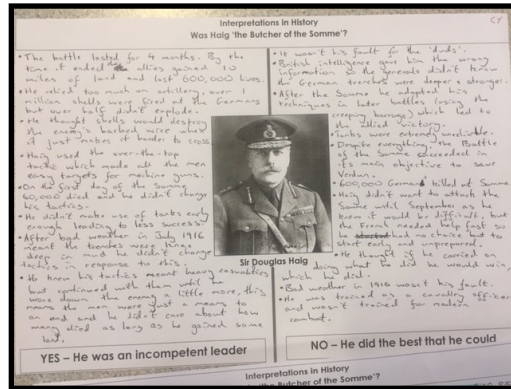 Interpretations in History
Was Haig 'the Butcher of the Somme'?
CY
• The battle lasted for 4 months. By the
time it ended the allies gained 10
miles of land and lost 600,000 lives.
• He relied too much on artillery, over 1
million shells were fired at the Germans
but over half didn't explode.
• He thought shells would destroy
the enemy's barbed wire when
it just makes it harder to cross.
• Haig used the over-the-top
tactic which made all the men
easy targets for machine guns.
• On the first day of the Somme
60,000 died and he didn't change
his tactics.
• He didn't make use of tanks early
enough leading to less success.
• After bad weather in July 1916
meant the trenches were
deep in mud he didn't change
tactics in response to this.
• He knew his tactics meant heavy casualties
but continued with them until he
wore down the enemy a little more, this
means the men were just a means to
an end and he didn't care about how
many died as long as he gained some
land.
YES – He was an incompetent leader
• It wasn't his fault for the 'duds'.
• British intelligence gave him the wrong
information so the generals didn't know
the German trenches were deeper + stronger.
• After the Somme he adapted his
techniques in later battles (using the
creeping barrage) which led to
the allied victory.
• Tanks were extremely unreliable.
• Despite everything, the Battle
of the Somme succeeded in
it's main objective to save
Verdun.
• 600,000 Germans killed at Somme
• Haig didn't want to attack the
Somme until September as he
knew it would be difficult, but
the French needed help fast so
he had no choice but to
start early and unprepared.
• He thought if he carried on
doing what he did he would win,
which he did.
• Bad weather in 1916 wasn't his fault.
• He was trained as a cavalry officer
and wasn't trained for modern
combat.
NO – He did the best that he could
Sir Douglas Haig
Interpretations in History
Butcher of the Somme'?